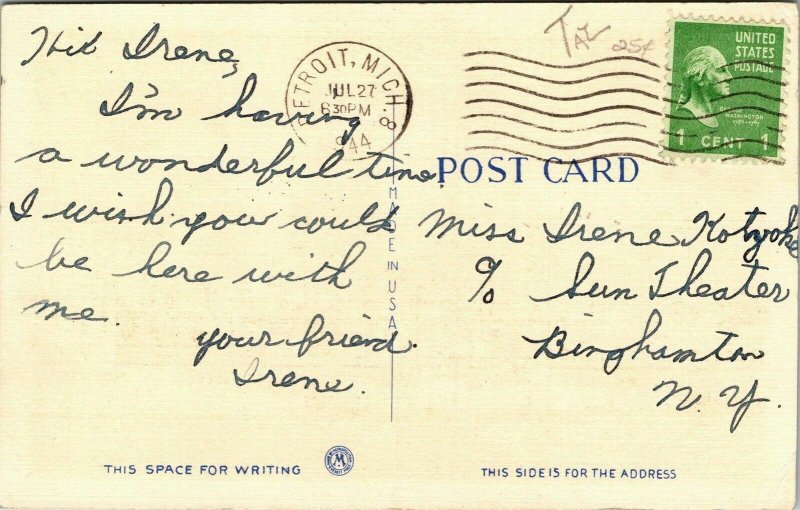 Hi Irene,
I'm having
a wonderful time.
I wish your could
be here with
me.
your friend.
Irene.
DETROIT, MICH. 8
JUL 27
830PM
1944
TAL 25¢
UNITED
STATES
POSTAGE
WASHINGTON
1789-1797
1 CENT 1
POST CARD
MADE IN USA
Miss Irene Kotyoke
c/o Sun Theater
Binghamton
N.Y.
THIS SPACE FOR WRITING
M
THIS SIDE IS FOR THE ADDRESS